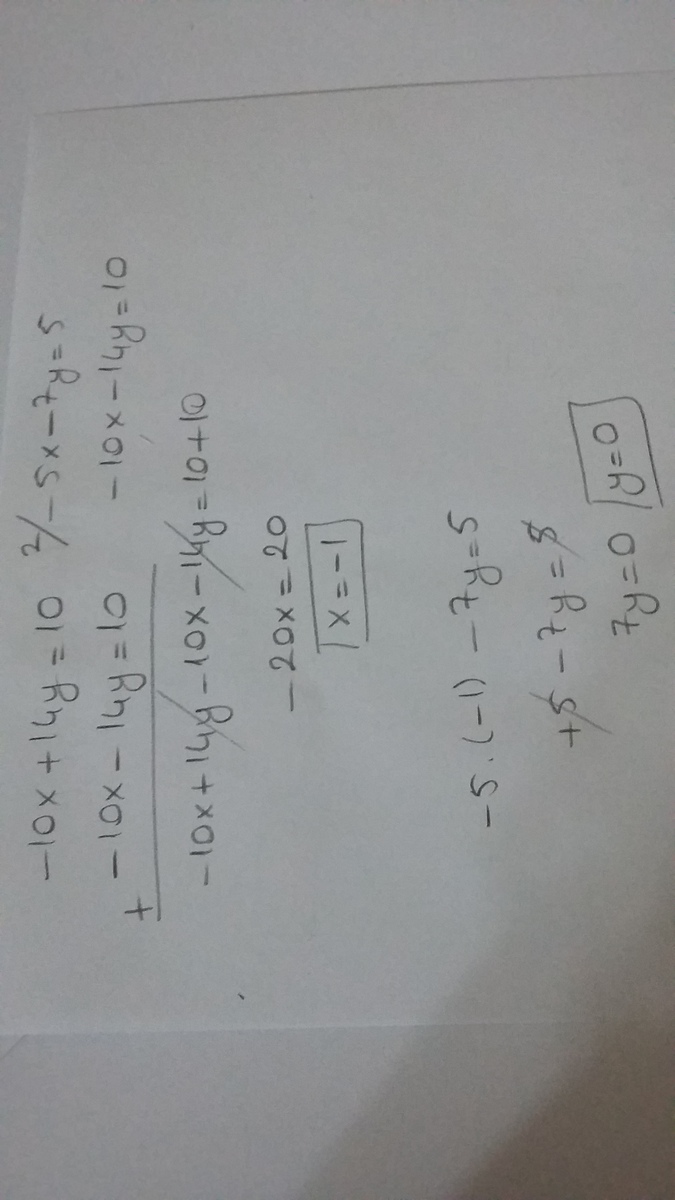 -10x + 14y = 10 2/ -5x - 7y = 5
+ -10x - 14y = 10 -10x - 14y = 10
-10x + 14y - 10x - 14y = 10 + 10
-20x = 20
x = -1
-5 . (-1) - 7y = 5
+5 - 7y = 5
7y = 0 y = 0